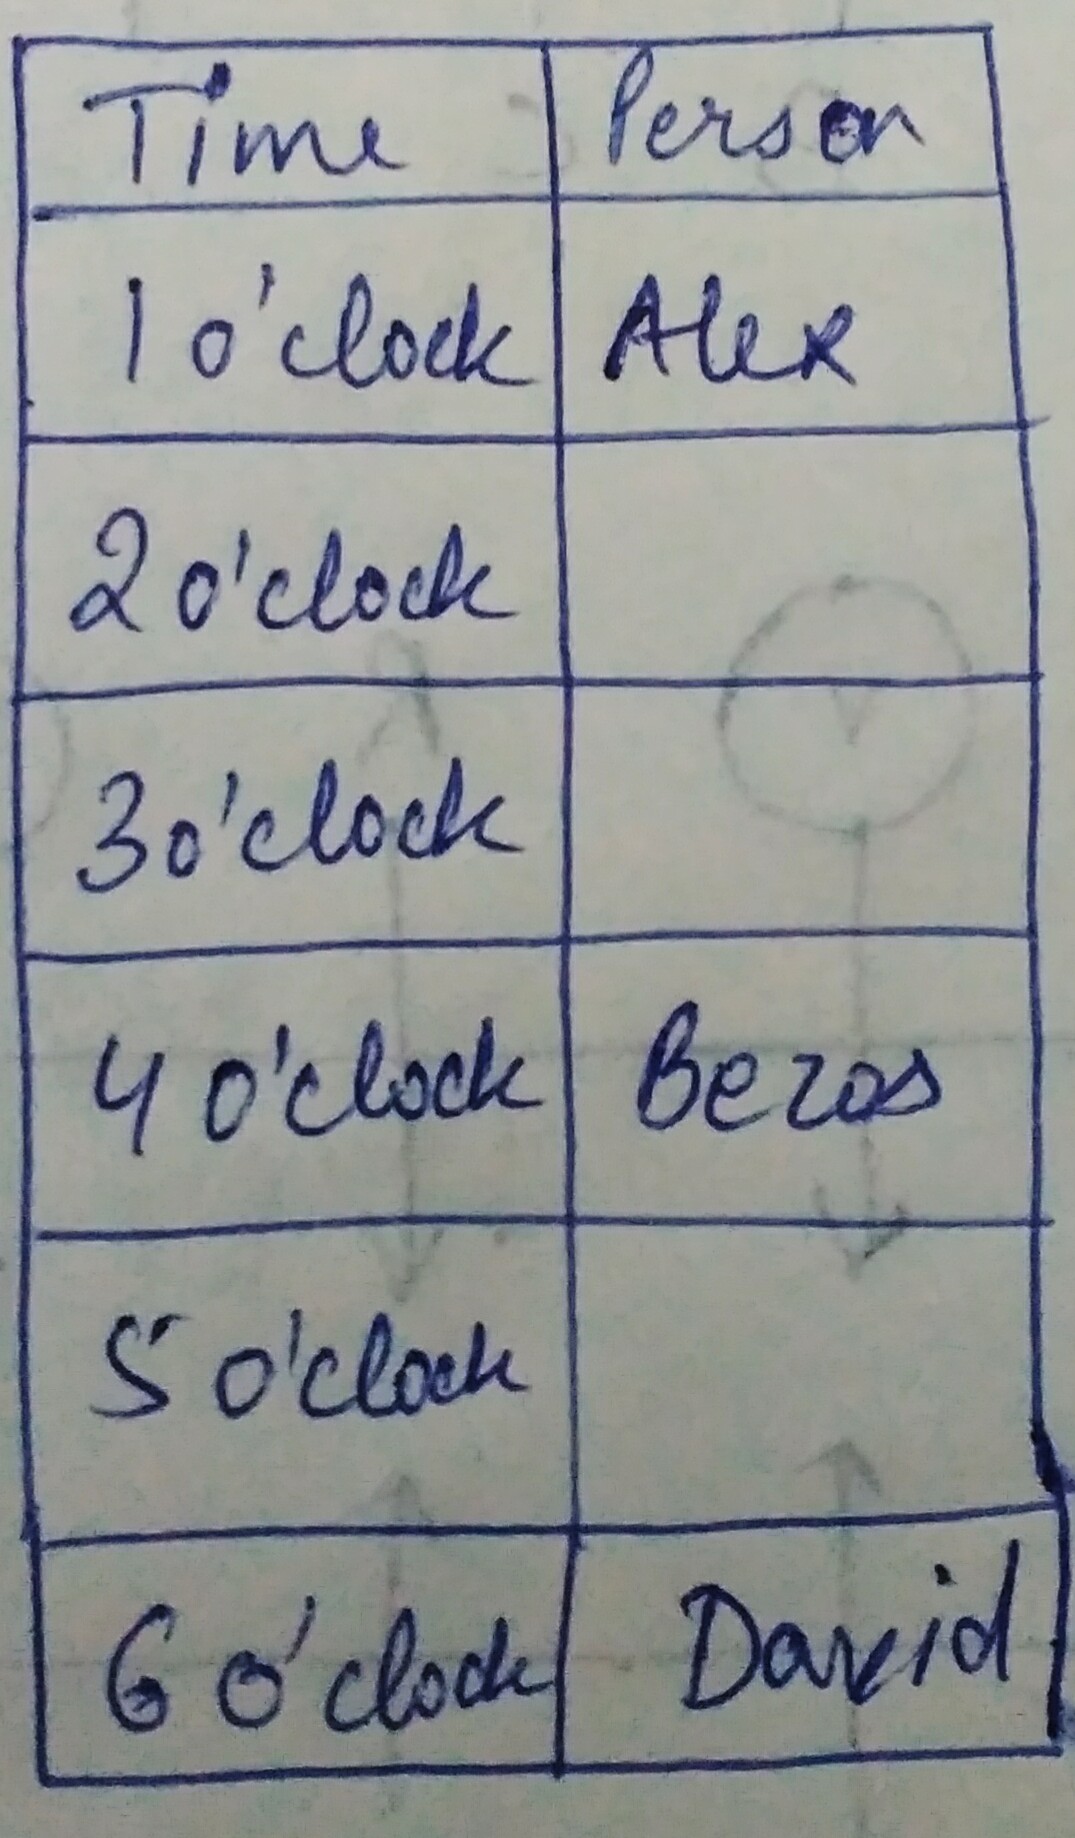 Time Person
1 o'clock Alex
2 o'clock
3 o'clock
4 o'clock Bezos
5 o'clock
6 o'clock David